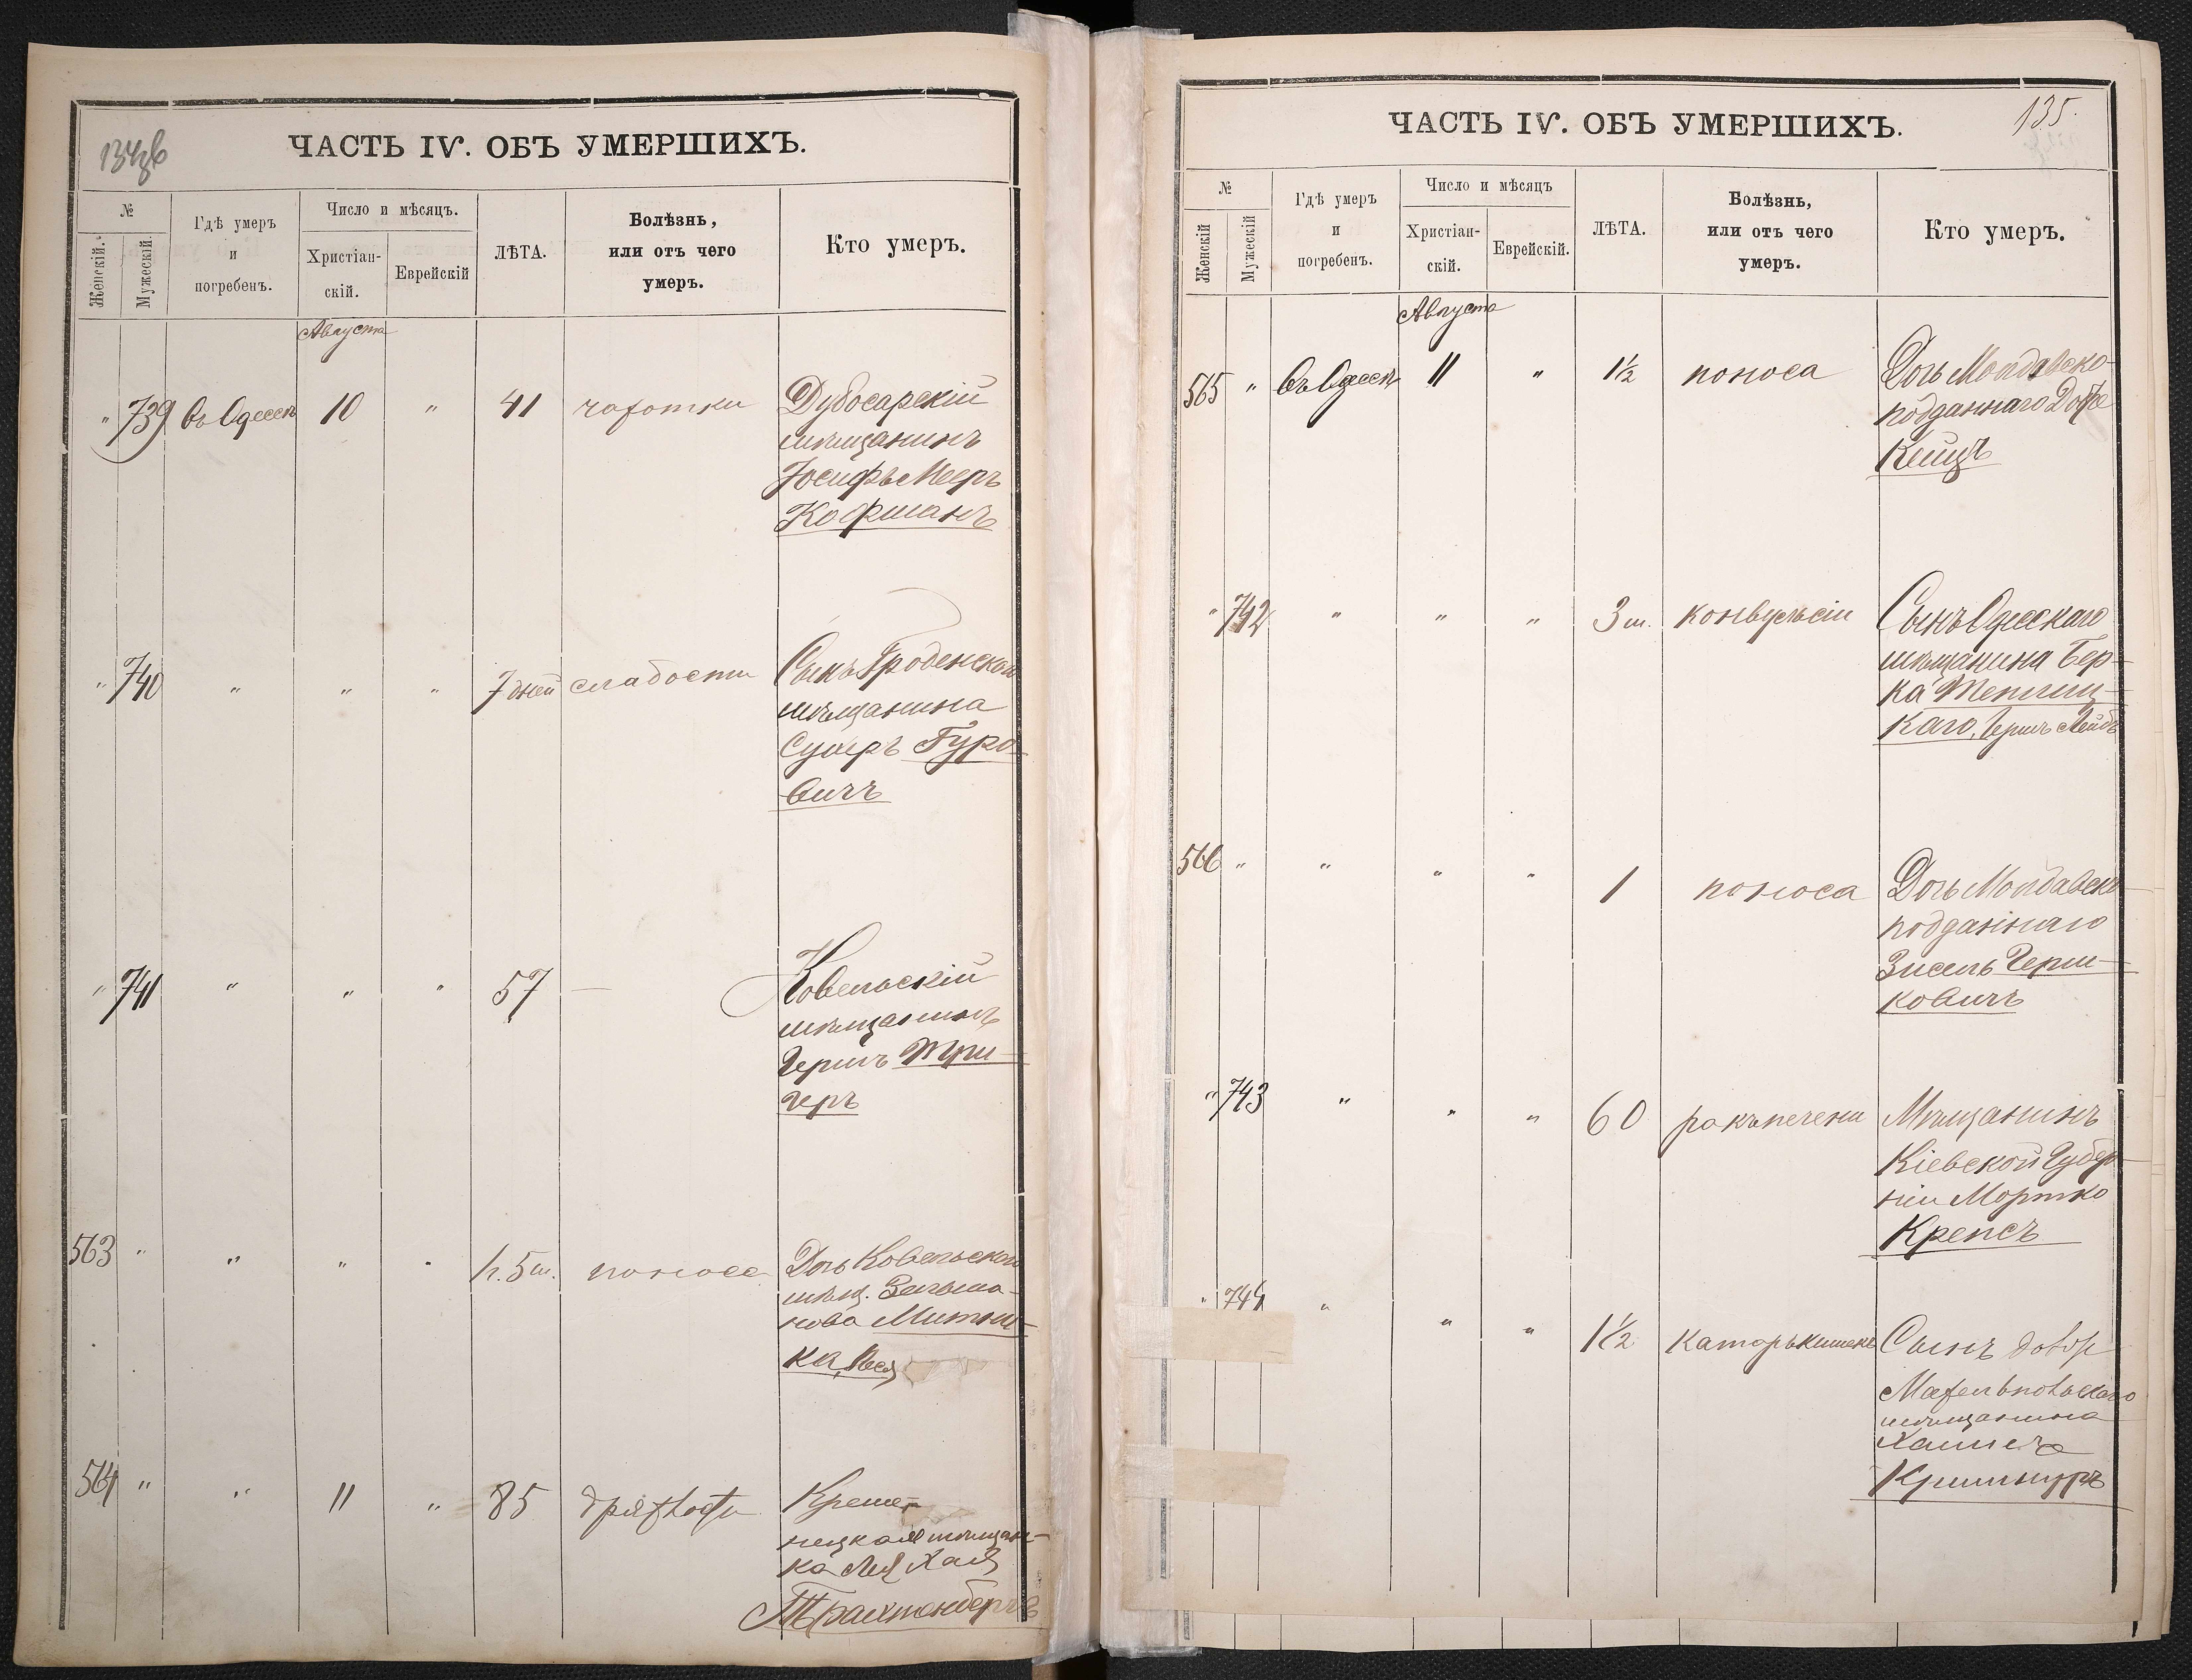 134об
ЧАСТЬ IV. ОБЪ УМЕРШИХЪ.
№
Женскій.
Мужескій.
Гдѣ умеръ
и
погребенъ.
Число и мѣсяцъ.
Христіан-
скій.
Еврейскій
ЛѢТА.
Болѣзнь,
или отъ чего
умеръ.
Кто умеръ.
Августа
" 739 въ Одессѣ 10 " 41 чахотки Дубосарскій
мѣщанинъ
Іосифъ Мееръ
Кофманъ
" 740 " " " 7 дней слабости Сынъ Гроденскаго
мѣщанина
Сухеръ Гуро-
вичъ
" 741 " " " 57 — Ковельскій
мѣщанинъ
Гершъ Три-
геръ
563 " " " " 1 г. 5 м. поноса Дочь Ковельскаго
мѣщ. Зельма-
нова Митни-
ка, Песя
564 " " 11 " 85 дряхлости Креме-
нецкая мѣщан-
ка Лея Хая
Трахтенбергъ
135.
ЧАСТЬ IV. ОБЪ УМЕРШИХЪ.
№
Женскій
Мужескій
Гдѣ умеръ
и
погребенъ.
Число и мѣсяцъ
Христіан-
скій.
Еврейскій.
ЛѢТА.
Болѣзнь,
или отъ чего
умеръ.
Кто умеръ.
Августа
565 " Въ Одессѣ 11 " 1½ поноса Дочь Молдавско-
подданнаго
Кейцъ
" 742 " " " 3 м. конвульсіи Сынъ Одесскаго
мѣщанина Бер-
ка Теплиц-
каго, Гершъ Лейбъ
566 " " " " 1 поноса Дочь Молдавско
подданнаго
Зисель Герш-
ковичъ
" 743 " " " 60 ракъ печени Мѣщанинъ
Кіевской Губер-
ніи Мортко
Крепсъ
" 744 " " " 1½ катаръ кишекъ Сынъ
мѣщанина